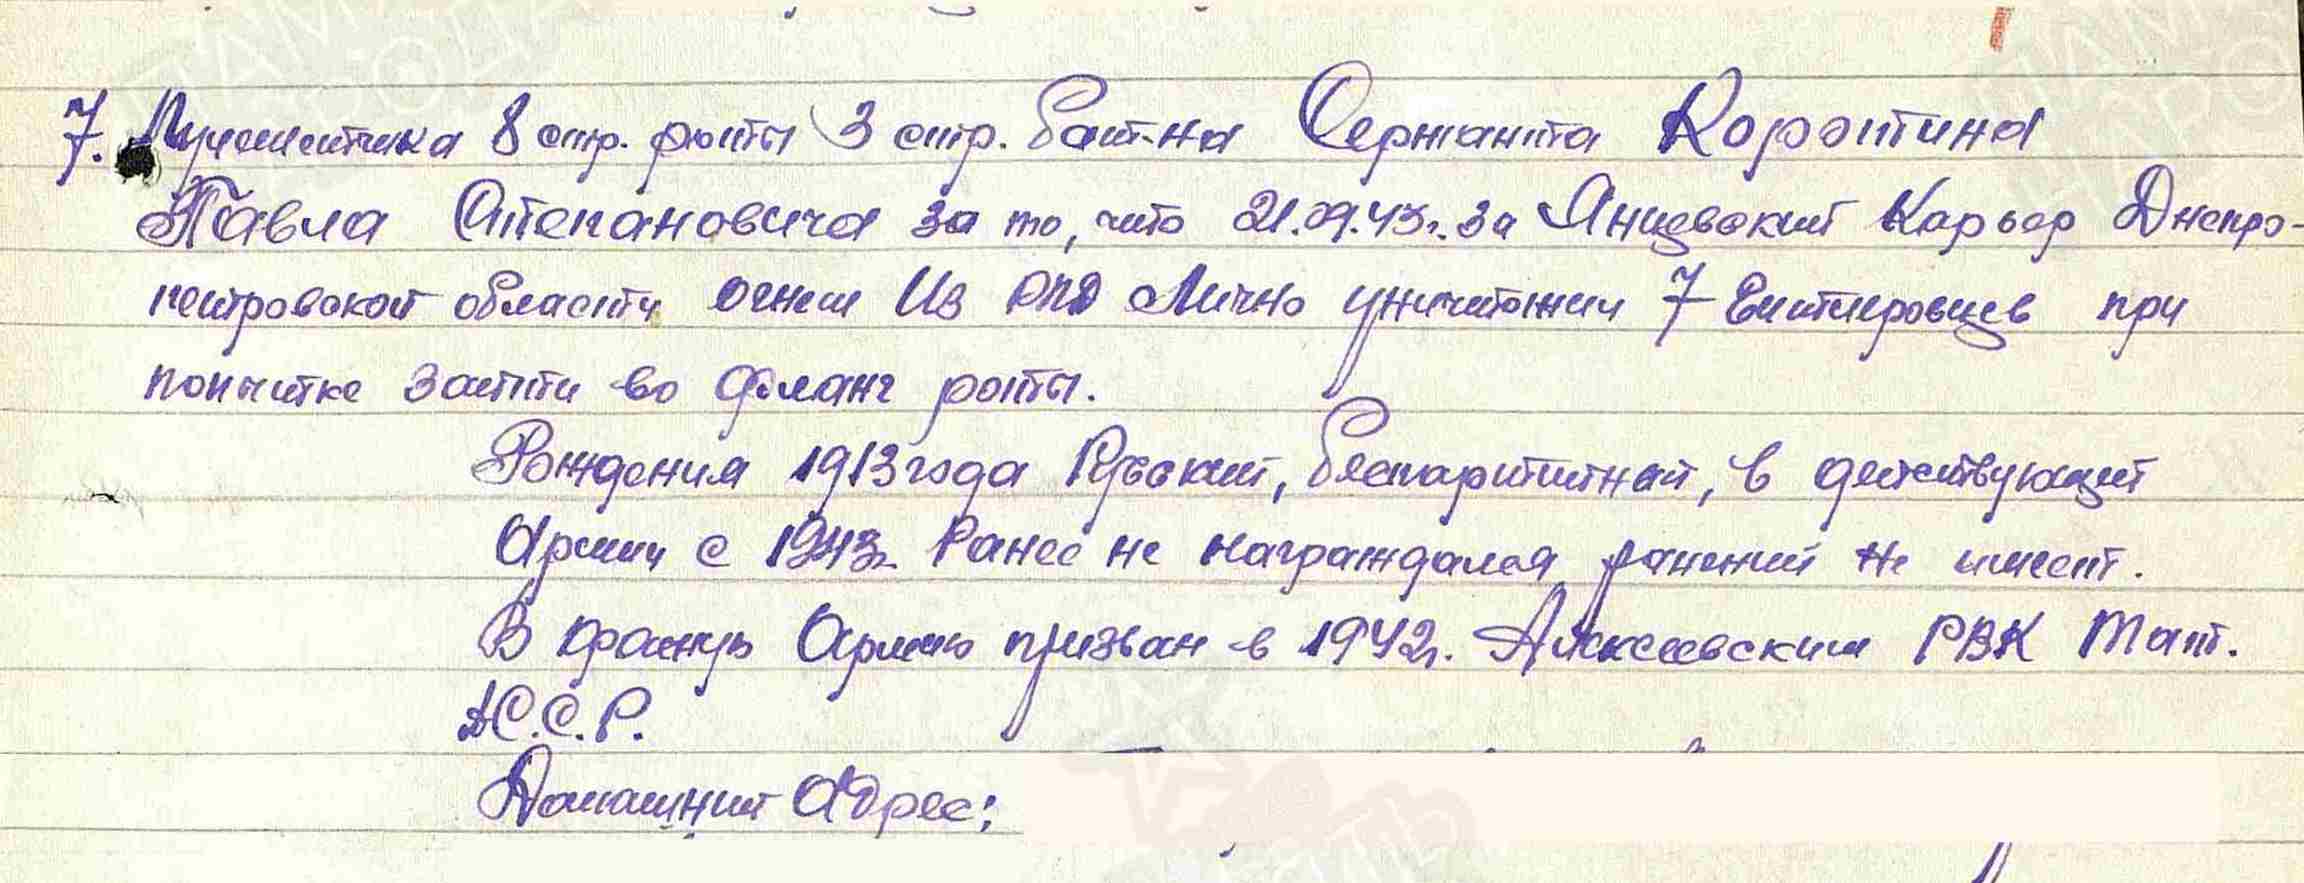 7. Пулеметчика 8 стр. роты 3 стр. бат-на Сержанта Коротина
Павла Степановича за то, что 21.09.43г. за Янцевский Карьер Днепро-
петровской области огнем Из РПД Лично уничтожил 7 Гитлеровцев при
попытке зайти во фланг роты.
Рождения 1913 года Русский, беспартийный, в действующей
Армии с 1943г. Ранее не награждался ранений не имеет.
В красную Армию призван в 1942г. Алексеевским РВК Тат.
А.С.С.Р.
Домашний Адрес: